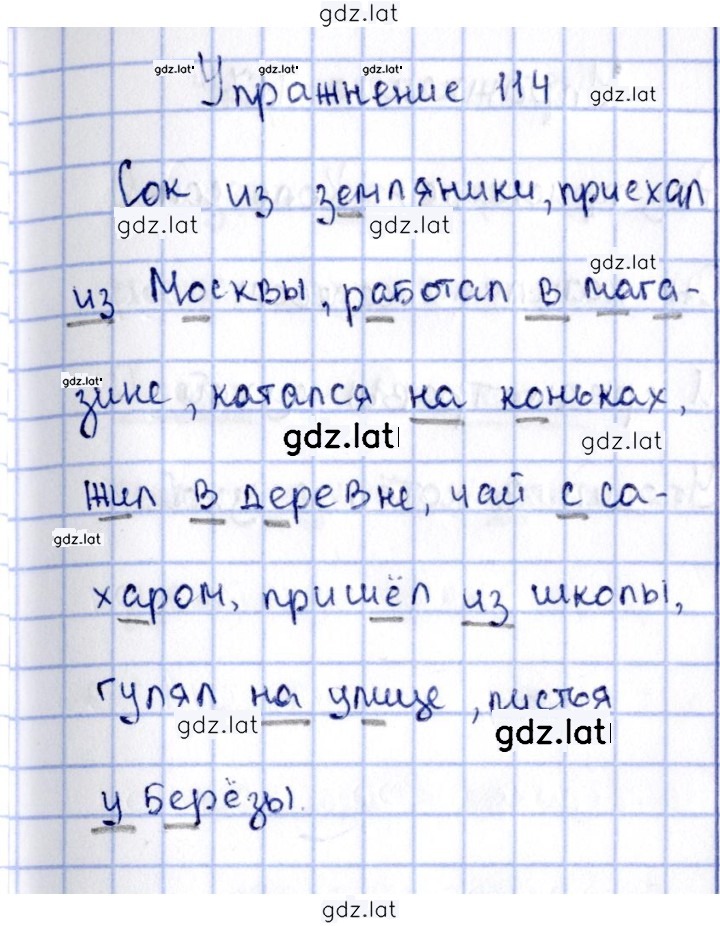 gdz.lat
gdz.lat gdz.lat gdz.lat
Упражнение 114 gdz.lat
Сок из земляники, приехал
gdz.lat gdz.lat
gdz.lat
из Москвы, работал в мага-
gdz.lat
зине, катался на коньках,
gdz.lat gdz.lat
жил в деревне, чай с са-
gdz.lat
харом, пришёл из школы,
гулял на улице, листья
gdz.lat gdz.lat
у берёзы.
gdz.lat